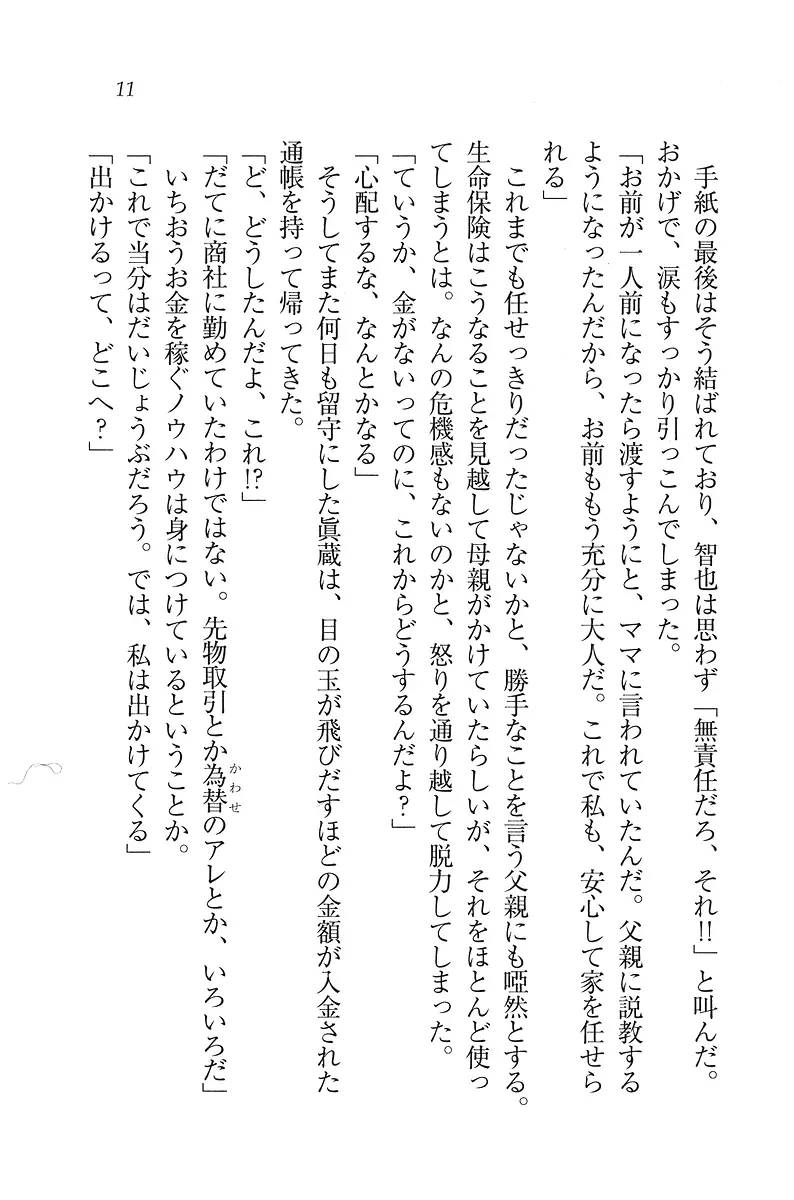 11
手紙の最後はそう結ばれており、智也は思わず「無責任だろ、それ!!」と叫んだ。
おかげで、涙もすっかり引っこんでしまった。
「お前が一人前になったら渡すようにと、ママに言われていたんだ。父親に説教する
ようになったんだから、お前ももう充分に大人だ。これで私も、安心して家を任せら
れる」
これまでも任せっきりだったじゃないかと、勝手なことを言う父親にも啞然とする。
生命保険はこうなることを見越して母親がかけていたらしいが、それをほとんど使っ
てしまうとは。なんの危機感もないのかと、怒りを通り越して脱力してしまった。
「ていうか、金がないってのに、これからどうするんだよ?」
「心配するな、なんとかなる」
そうしてまた何日も留守にした眞蔵は、目の玉が飛びだすほどの金額が入金された
通帳を持って帰ってきた。
「ど、どうしたんだよ、これ!?」
「だてに商社に勤めていたわけではない。先物取引とか為替のアレとか、いろいろだ」
かわせ
いちおうお金を稼ぐノウハウは身につけているということか。
「これで当分はだいじょうぶだろう。では、私は出かけてくる」
「出かけるって、どこへ?」